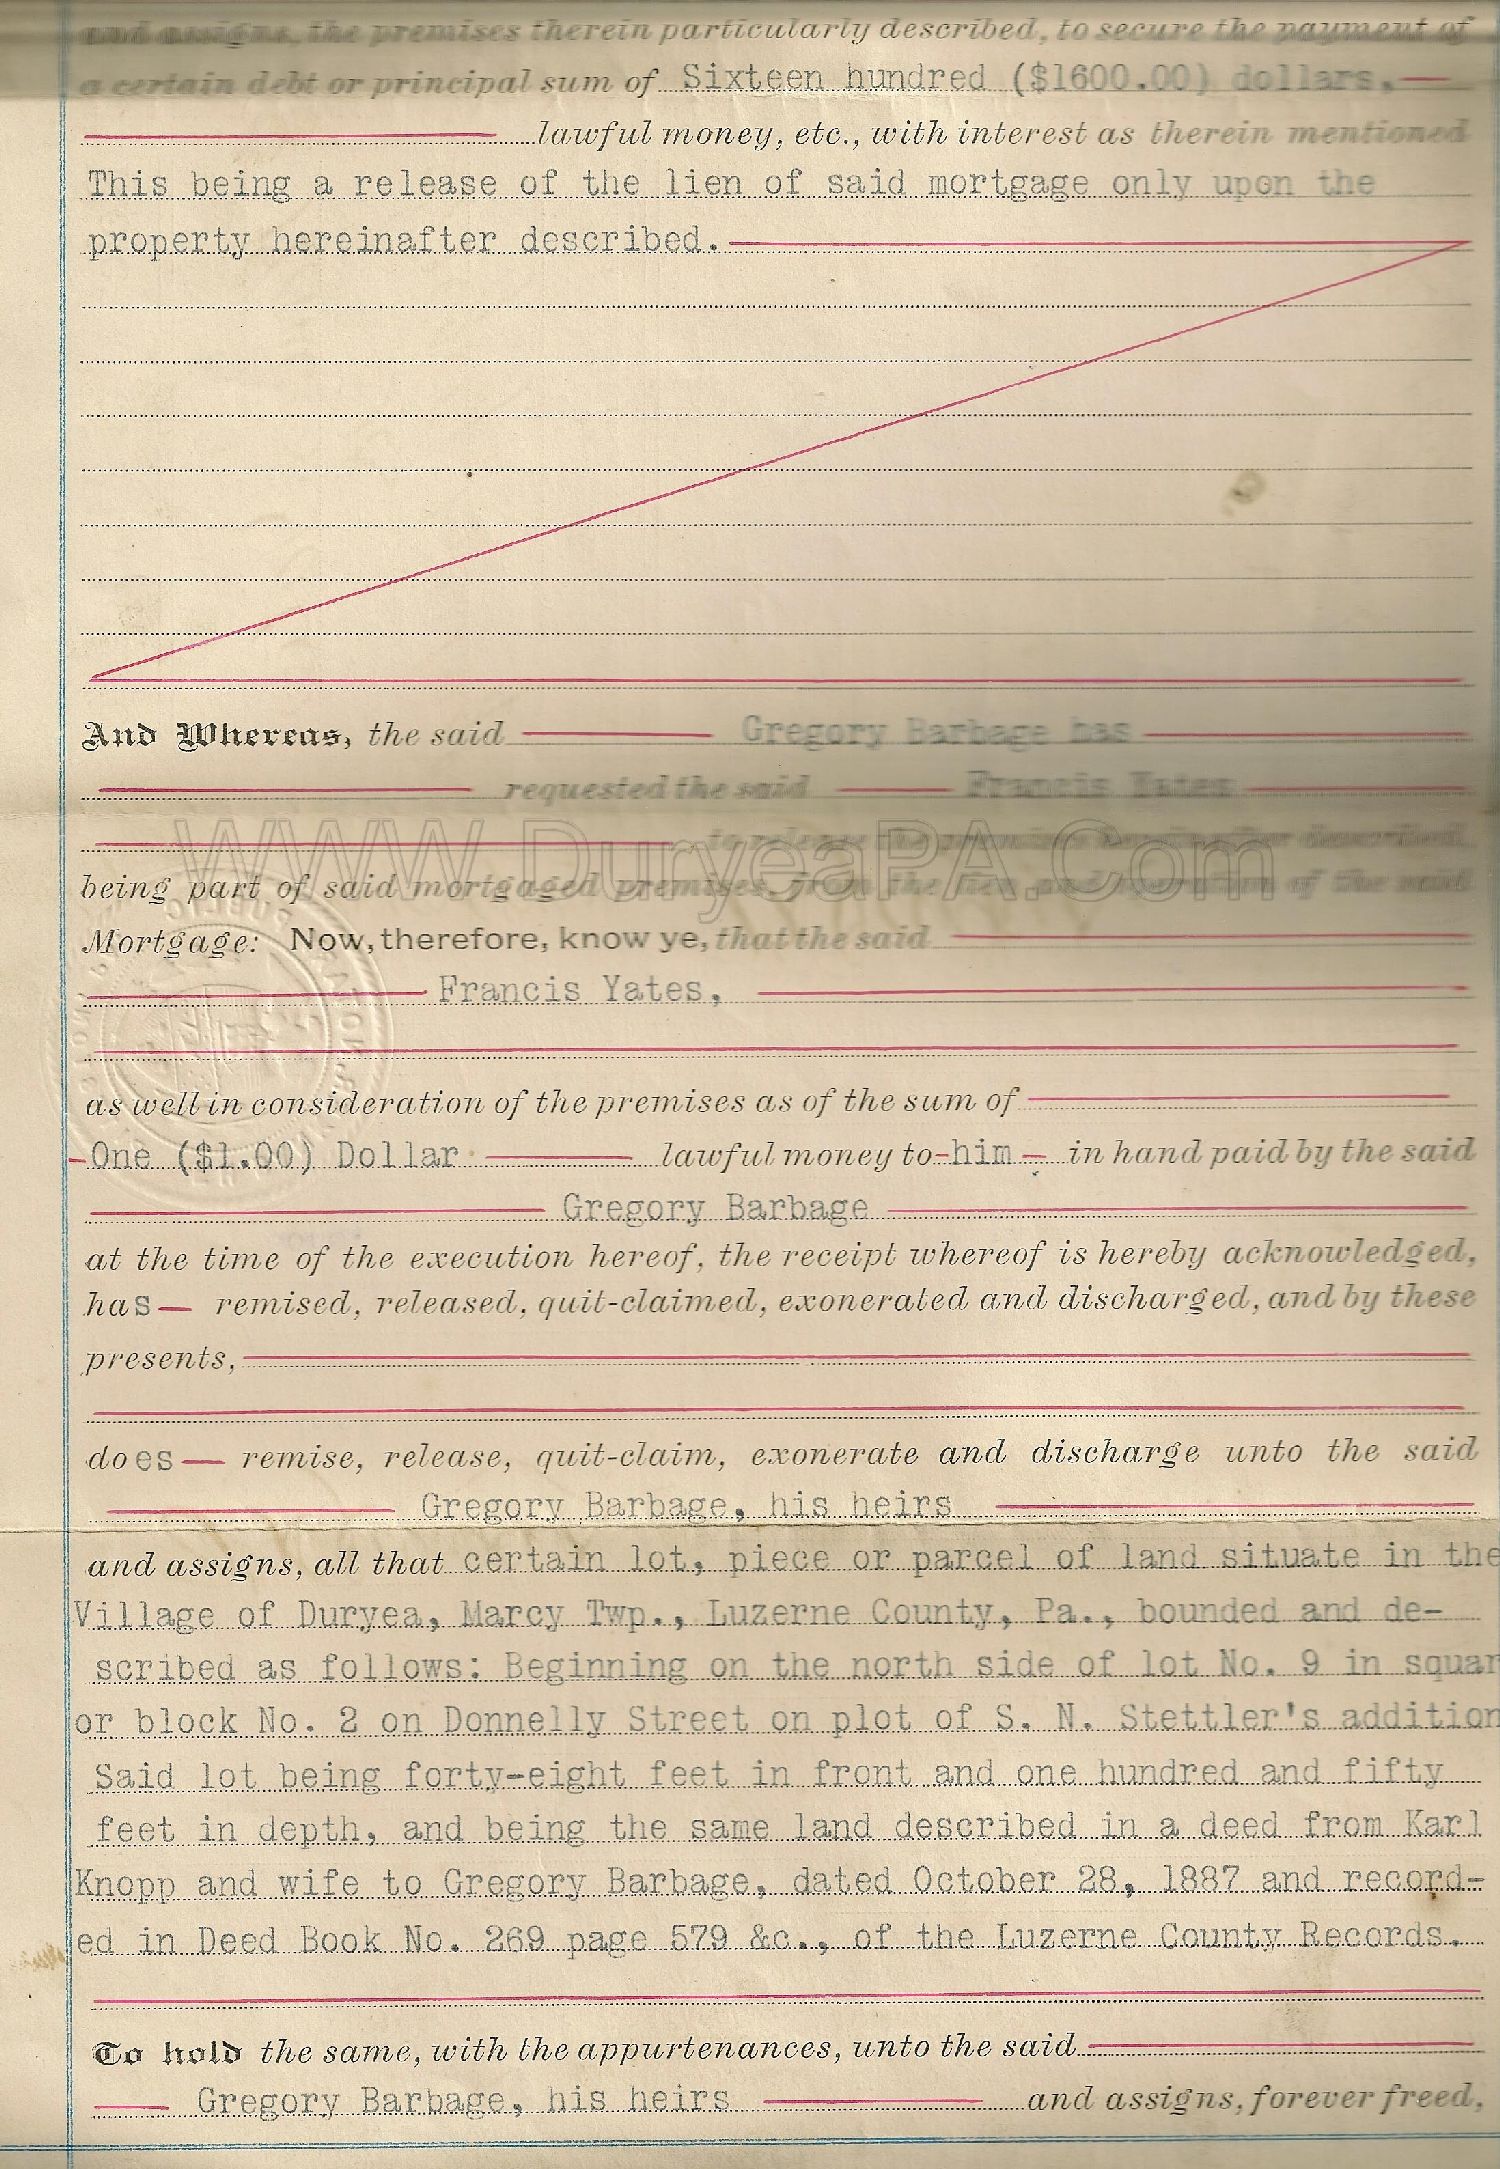 and assigns, the premises therein particularly described, to secure the payment of
a certain debt or principal sum of Sixteen hundred ($1600.00) dollars,
lawful money, etc., with interest as therein mentioned
This being a release of the lien of said mortgage only upon the
property hereinafter described.
And Whereas, the said Gregory Barbage has
requested the said Francis Yates
to release the premises hereinafter described,
WWW.DuryeaPA.Com
being part of said mortgaged premises, from the lien and operation of the said
Mortgage: Now, therefore, know ye, that the said
Francis Yates,
as well in consideration of the premises as of the sum of
One ($1.00) Dollar lawful money to him in hand paid by the said
Gregory Barbage
at the time of the execution hereof, the receipt whereof is hereby acknowledged,
has remised, released, quit-claimed, exonerated and discharged, and by these
presents,
does remise, release, quit-claim, exonerate and discharge unto the said
Gregory Barbage, his heirs
and assigns, all that certain lot, piece or parcel of land situate in the
Village of Duryea, Marcy Twp., Luzerne County, Pa., bounded and de-
scribed as follows: Beginning on the north side of lot No. 9 in squar
or block No. 2 on Donnelly Street on plot of S. N. Stettler's addition
Said lot being forty-eight feet in front and one hundred and fifty
feet in depth, and being the same land described in a deed from Karl
Knopp and wife to Gregory Barbage, dated October 28, 1887 and record-
ed in Deed Book No. 269 page 579 &c., of the Luzerne County Records.
To hold the same, with the appurtenances, unto the said
Gregory Barbage, his heirs and assigns, forever freed,